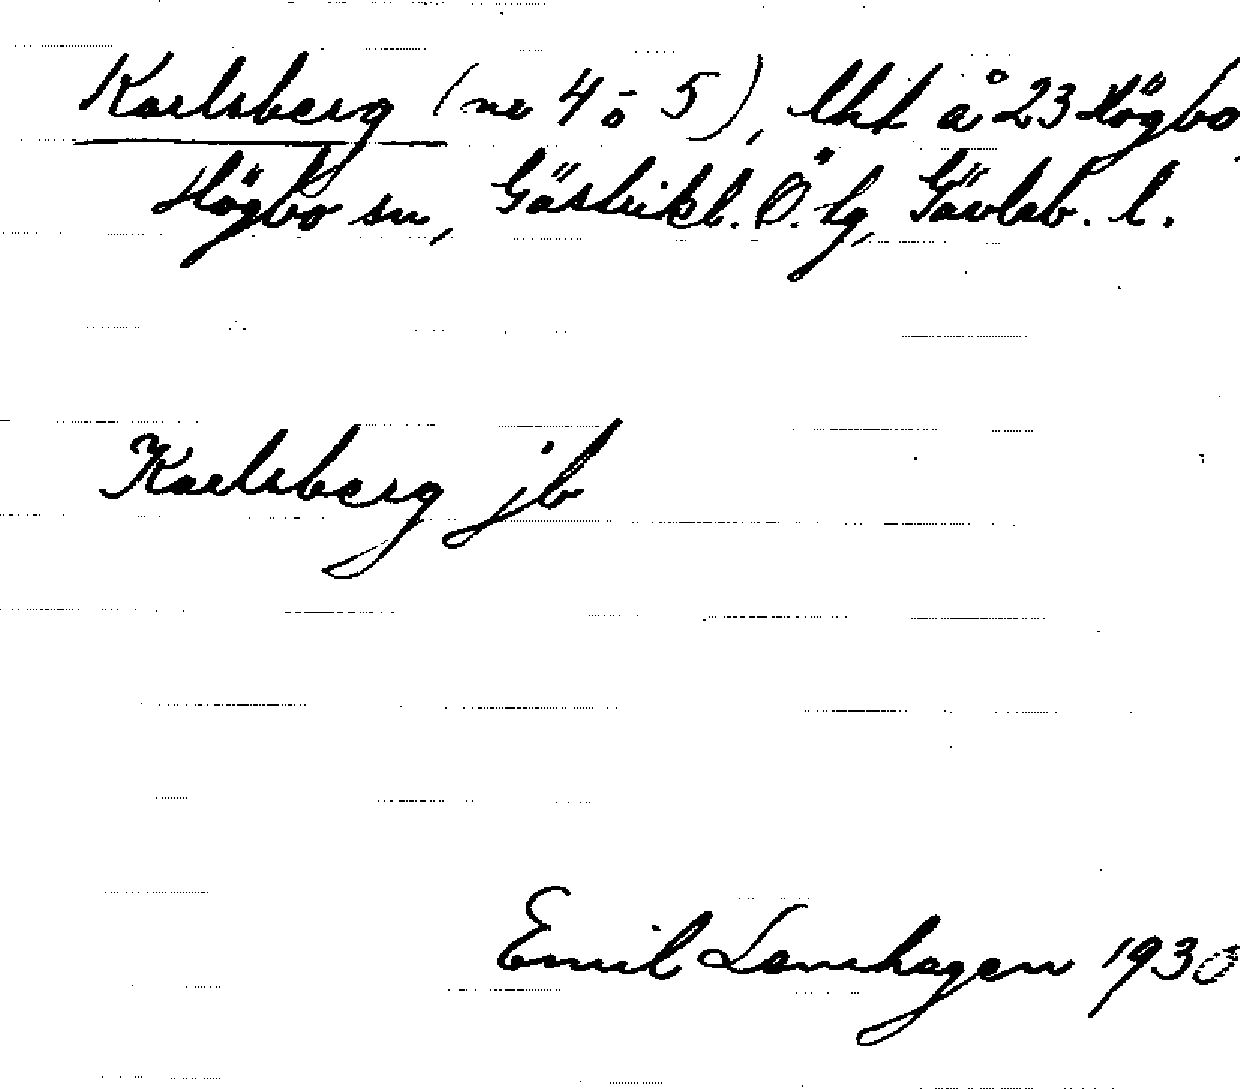 Karlsberg (nr 4 o 5), lht å 23 Högbo,
Högbo sn, Gästrikl. Ö. tg, Gävleb. l.
Karlsberg jb
Emil Lenhagen 1930